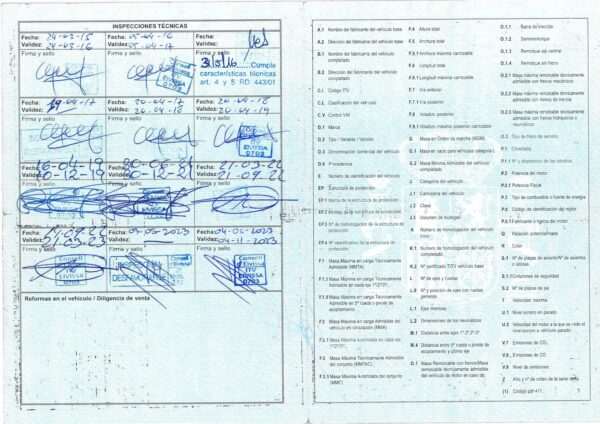 INSPECCIONES TÉCNICAS
Fecha: 24-03-15
Validez: 24-03-16
Firma y sello
Fecha: 05-04-16
Validez: 05-04-17
Firma y sello
Cumple
características técnicas
art. 4 y 5 RD 443/01
Fecha:
Validez:
Firma y sello
Fecha: 20-04-17
Validez:
Firma y sello
Fecha:
Validez: 20-04-19
Firma y sello
EIVISSA
0703
16-04-19
Firma y sello
Firma y sello
21-03-22
21-09-22
Firma y sello
Fecha:
Validez:
Firma y sello
Fecha: 03-05-2023
Validez:
Firma y sello
Fecha: 04-05-2023
Validez: 04-11-2023
Firma y sello
Consell
ITV
EIVISSA
0703
INSPECCIÓN
Consell
ITV
EIVISSA
0703
Reformas en el vehículo / Diligencia de venta
A.1 Nombre del fabricante del vehículo base
A.2 Dirección del fabricante del vehículo base
B.1 Nombre del fabricante del vehículo
completado
B.2 Dirección del fabricante del vehículo
completado
C.I. Código ITV
C.L Clasificación del vehículo
C.V Control VIN
D.1 Marca
D.2 Tipo / Variante / Versión
D.3 Denominación comercial del vehículo
D.6 Procedencia
E Número de identificación del vehículo
EP Estructura de protección
EP.1 Marca de la estructura de protección
EP.2 Modelo de la estructura de protección
EP.3 Nº de homologación de la estructura de
protección
EP.4 Nº identificativo de la estructura de
protección
F.1 Masa Máxima en carga Técnicamente
Admisible (MMTA)
F.1.1 Masa Máxima en carga Técnicamente
Admisible en cada eje 1º/2º/3º
F.1.5 Masa Máxima en carga Técnicamente
Admisible en 5ª rueda o pivote de
acoplamiento
F.2 Masa Máxima en carga Admisible del
vehículo en circulación (MMA)
F.2.1 Masa Máxima autorizada en cada eje
1º/2º/3º
F.3 Masa Máxima Técnicamente Admisible
del conjunto (MMTAC)
F.3.1 Masa Máxima Autorizada del conjunto
(MMC)
F.4 Altura total
F.5 Anchura total
F.5.1 Anchura máxima carrozable
F.6 Longitud total
F.6.1 Longitud máxima carrozable
F.7 Vía anterior
F.7.1 Vía posterior
F.8 Voladizo posterior
F.8.1 Voladizo máximo posterior carrozable
G Masa en Orden de marcha (MOM)
G.1 Masa en vacío para vehículos categoría L
G.2 Masa Mínima Admisible del vehículo
completado
J Categoría del vehículo
J.1 Carrocería del vehículo
J.2 Clase
J.3 Volumen de bodegas
K Número de homologación del vehículo
base
K.1 Número de homologación del vehículo
completado
K.2 Nº certificado TITV vehículo base
L Nº de ejes y ruedas
L.0 Nº y posición de ejes con ruedas
gemelas
L.1 Ejes motrices
L.2 Dimensiones de los neumáticos
M.1 Distancia entre ejes 1º-2º,2º-3º
M.4 Distancia entre 5ª rueda o pivote de
acoplamiento y último eje
O.1 Masa Remolcable con frenos/Masa
remolcable técnicamente admisible
del vehículo de motor en caso de:
O.1.1 Barra de tracción
O.1.2 Semirremolque
O.1.3 Remolque eje central
O.1.4 Remolque sin freno
O.2.1 Masa máxima remolcable técnicamente
admisible con frenos de inercia
O.3 Tipo de freno de servicio
P.1 Cilindrada
P.1.1 Nº y disposición de los cilindros
P.2 Potencia del motor
P.2.1 Potencia Fiscal
P.3 Tipo de combustible o fuente de energía
P.5 Código de identificación del motor
P.5.1 Fabricante o marca del motor
Q Relación potencia/masa
R Color
S.1 Nº de plazas de asiento/Nº de asientos
o sillines
S.1.1 Cinturones de seguridad
S.2 Nº de plazas de pie
T Velocidad máxima
U.1 Nivel sonoro en parado
U.2 Velocidad del motor a la que se mide el
nivel sonoro a vehículo parado
V.7 Emisiones de CO₂
V.8 Emisiones de CO
V.9 Nivel de emisiones
Z Año y nº de orden de la serie corta
(1) Código pdf 417